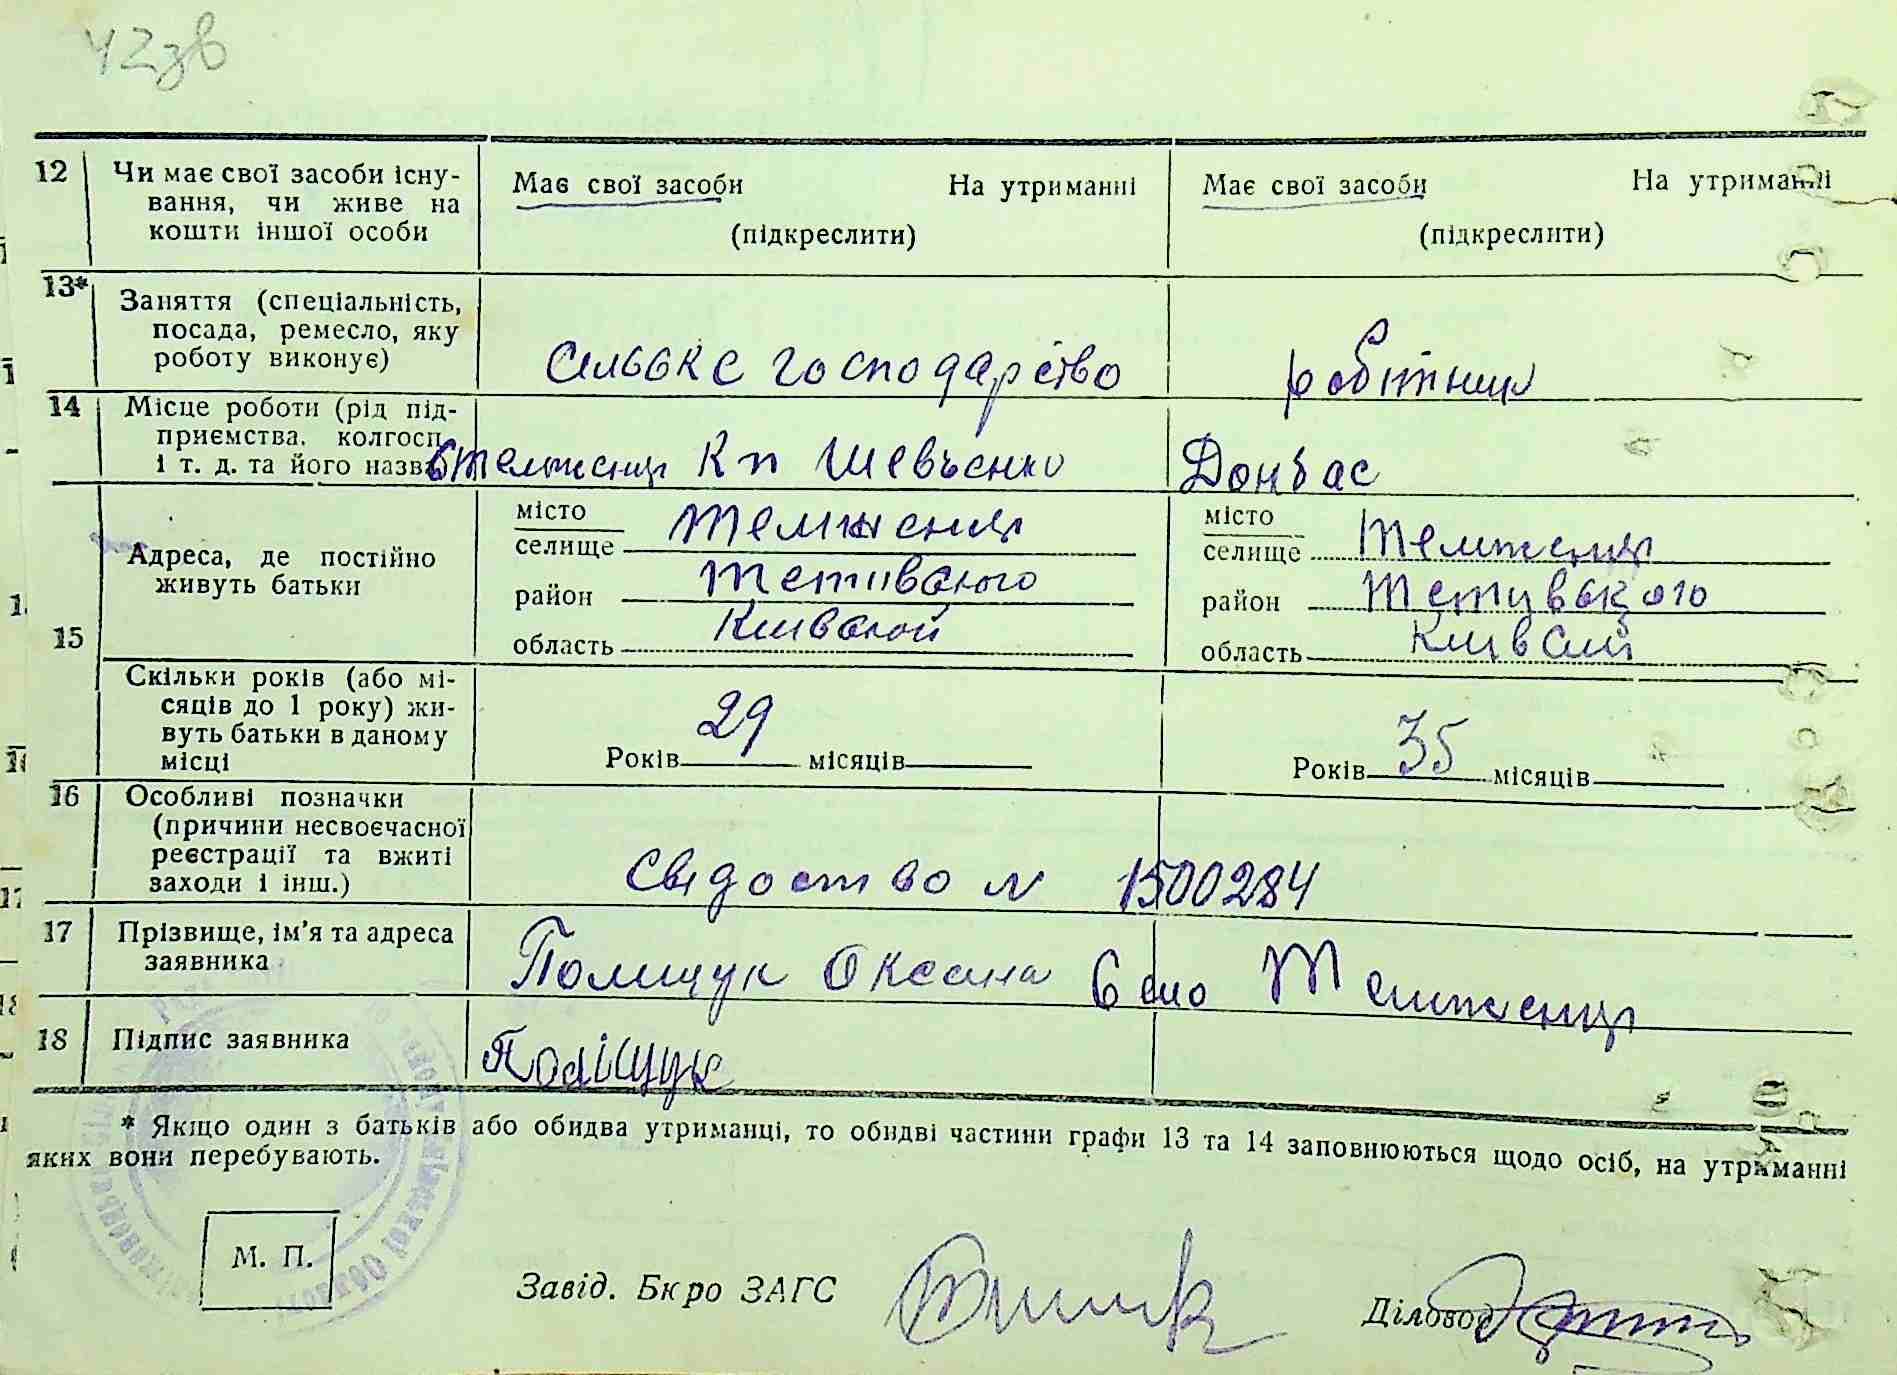 42зв
12 Чи має свої засоби існу-
вання, чи живе на
кошти іншої особи
Має свої засоби На утриманні
(підкреслити)
Має свої засоби На утриманні
(підкреслити)
13* Заняття (спеціальність,
посада, ремесло, яку
роботу виконує)
сильске господарство
робітник
14 Місце роботи (рід під-
приємства, колгосп
і т. д. та його назва
Кп Шевченко
Донбас
15 Адреса, де постійно
живуть батьки
місто
селище
район Тетивского
область Киевской
місто
селище
район
область
Скільки років (або мі-
сяців до 1 року) жи-
вуть батьки в даному
місці
Років 29 місяців
Років 35 місяців
16 Особливі позначки
(причини несвоєчасної
реєстрації та вжиті
заходи і інш.)
Свідоство N 1500284
17 Прізвище, ім'я та адреса
заявника
Полищук Оксана село
18 Підпис заявника
Поліщук
* Якщо один з батьків або обидва утриманці, то обидві частини графи 13 та 14 заповнюються щодо осіб, на утриманні
яких вони перебувають.
М. П.
Завід. Бюро ЗАГС
Діловод